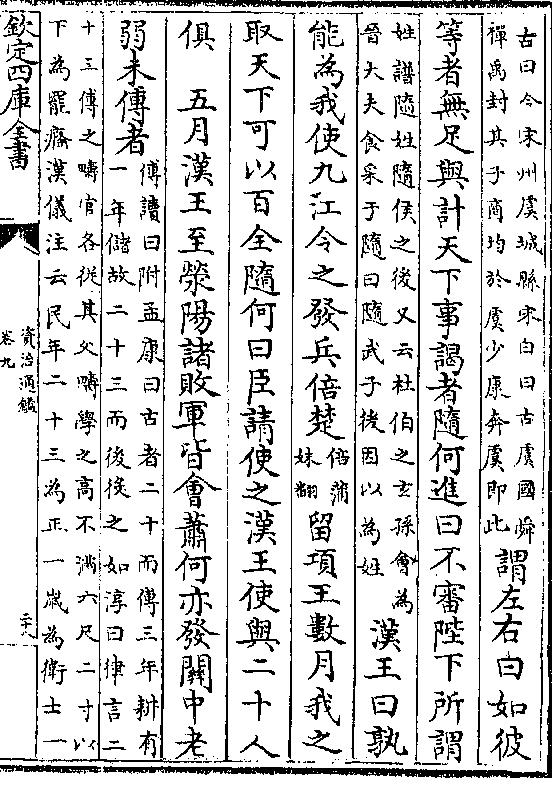 古曰今宋州虞城縣宋白曰古虞國舜
禪禹封其子商均於虞少康奔虞即此
謂左右曰如彼
等者無足與計天下事謁者隨何進曰不審陛下所謂
姓譜隨姓隨侯之後又云杜伯之玄孫會為
晉大夫食采于隨曰隨武子後因以為姓
漢王曰孰
能為我使九江令之發兵倍楚
倍蒲
妹翻
留項王數月我之
取天下可以百全隨何曰臣請使之漢王使與二十人
俱　五月漢王至滎陽諸敗軍皆會蕭何亦發關中老
弱未傅者
傅讀曰附孟康曰古者二十而傅三年耕有
一年儲故二十三而後役之如淳曰律言二
十三傅之疇官各從其父疇學之高不滿六尺二寸以
下為罷癃漢儀注云民年二十三為正一歲為衛士一
欽定四庫全書
資治通鑑
卷九
二十八